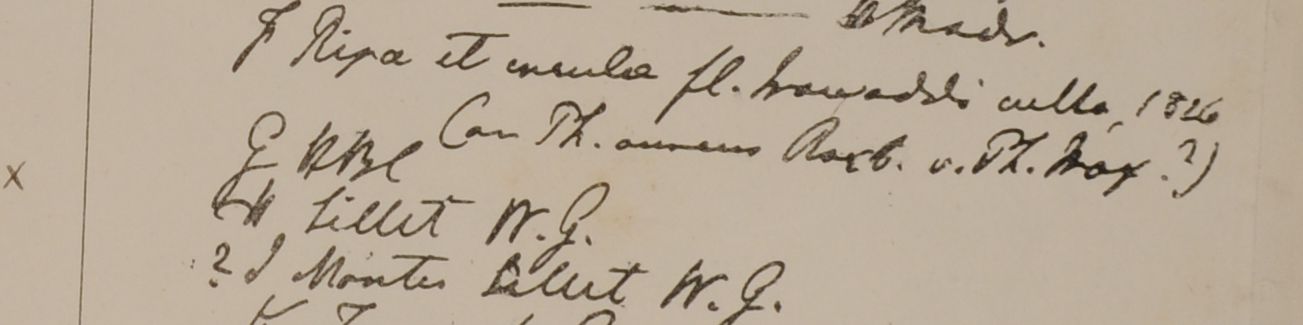 H Madr.
F Ripa et insulae fl. Irawaddi culta, 1826
G HBC (an Ph. aureus Roxb. v. Ph. Max ?)
H Sillet W.G.
? I Montes Sillet W.G.